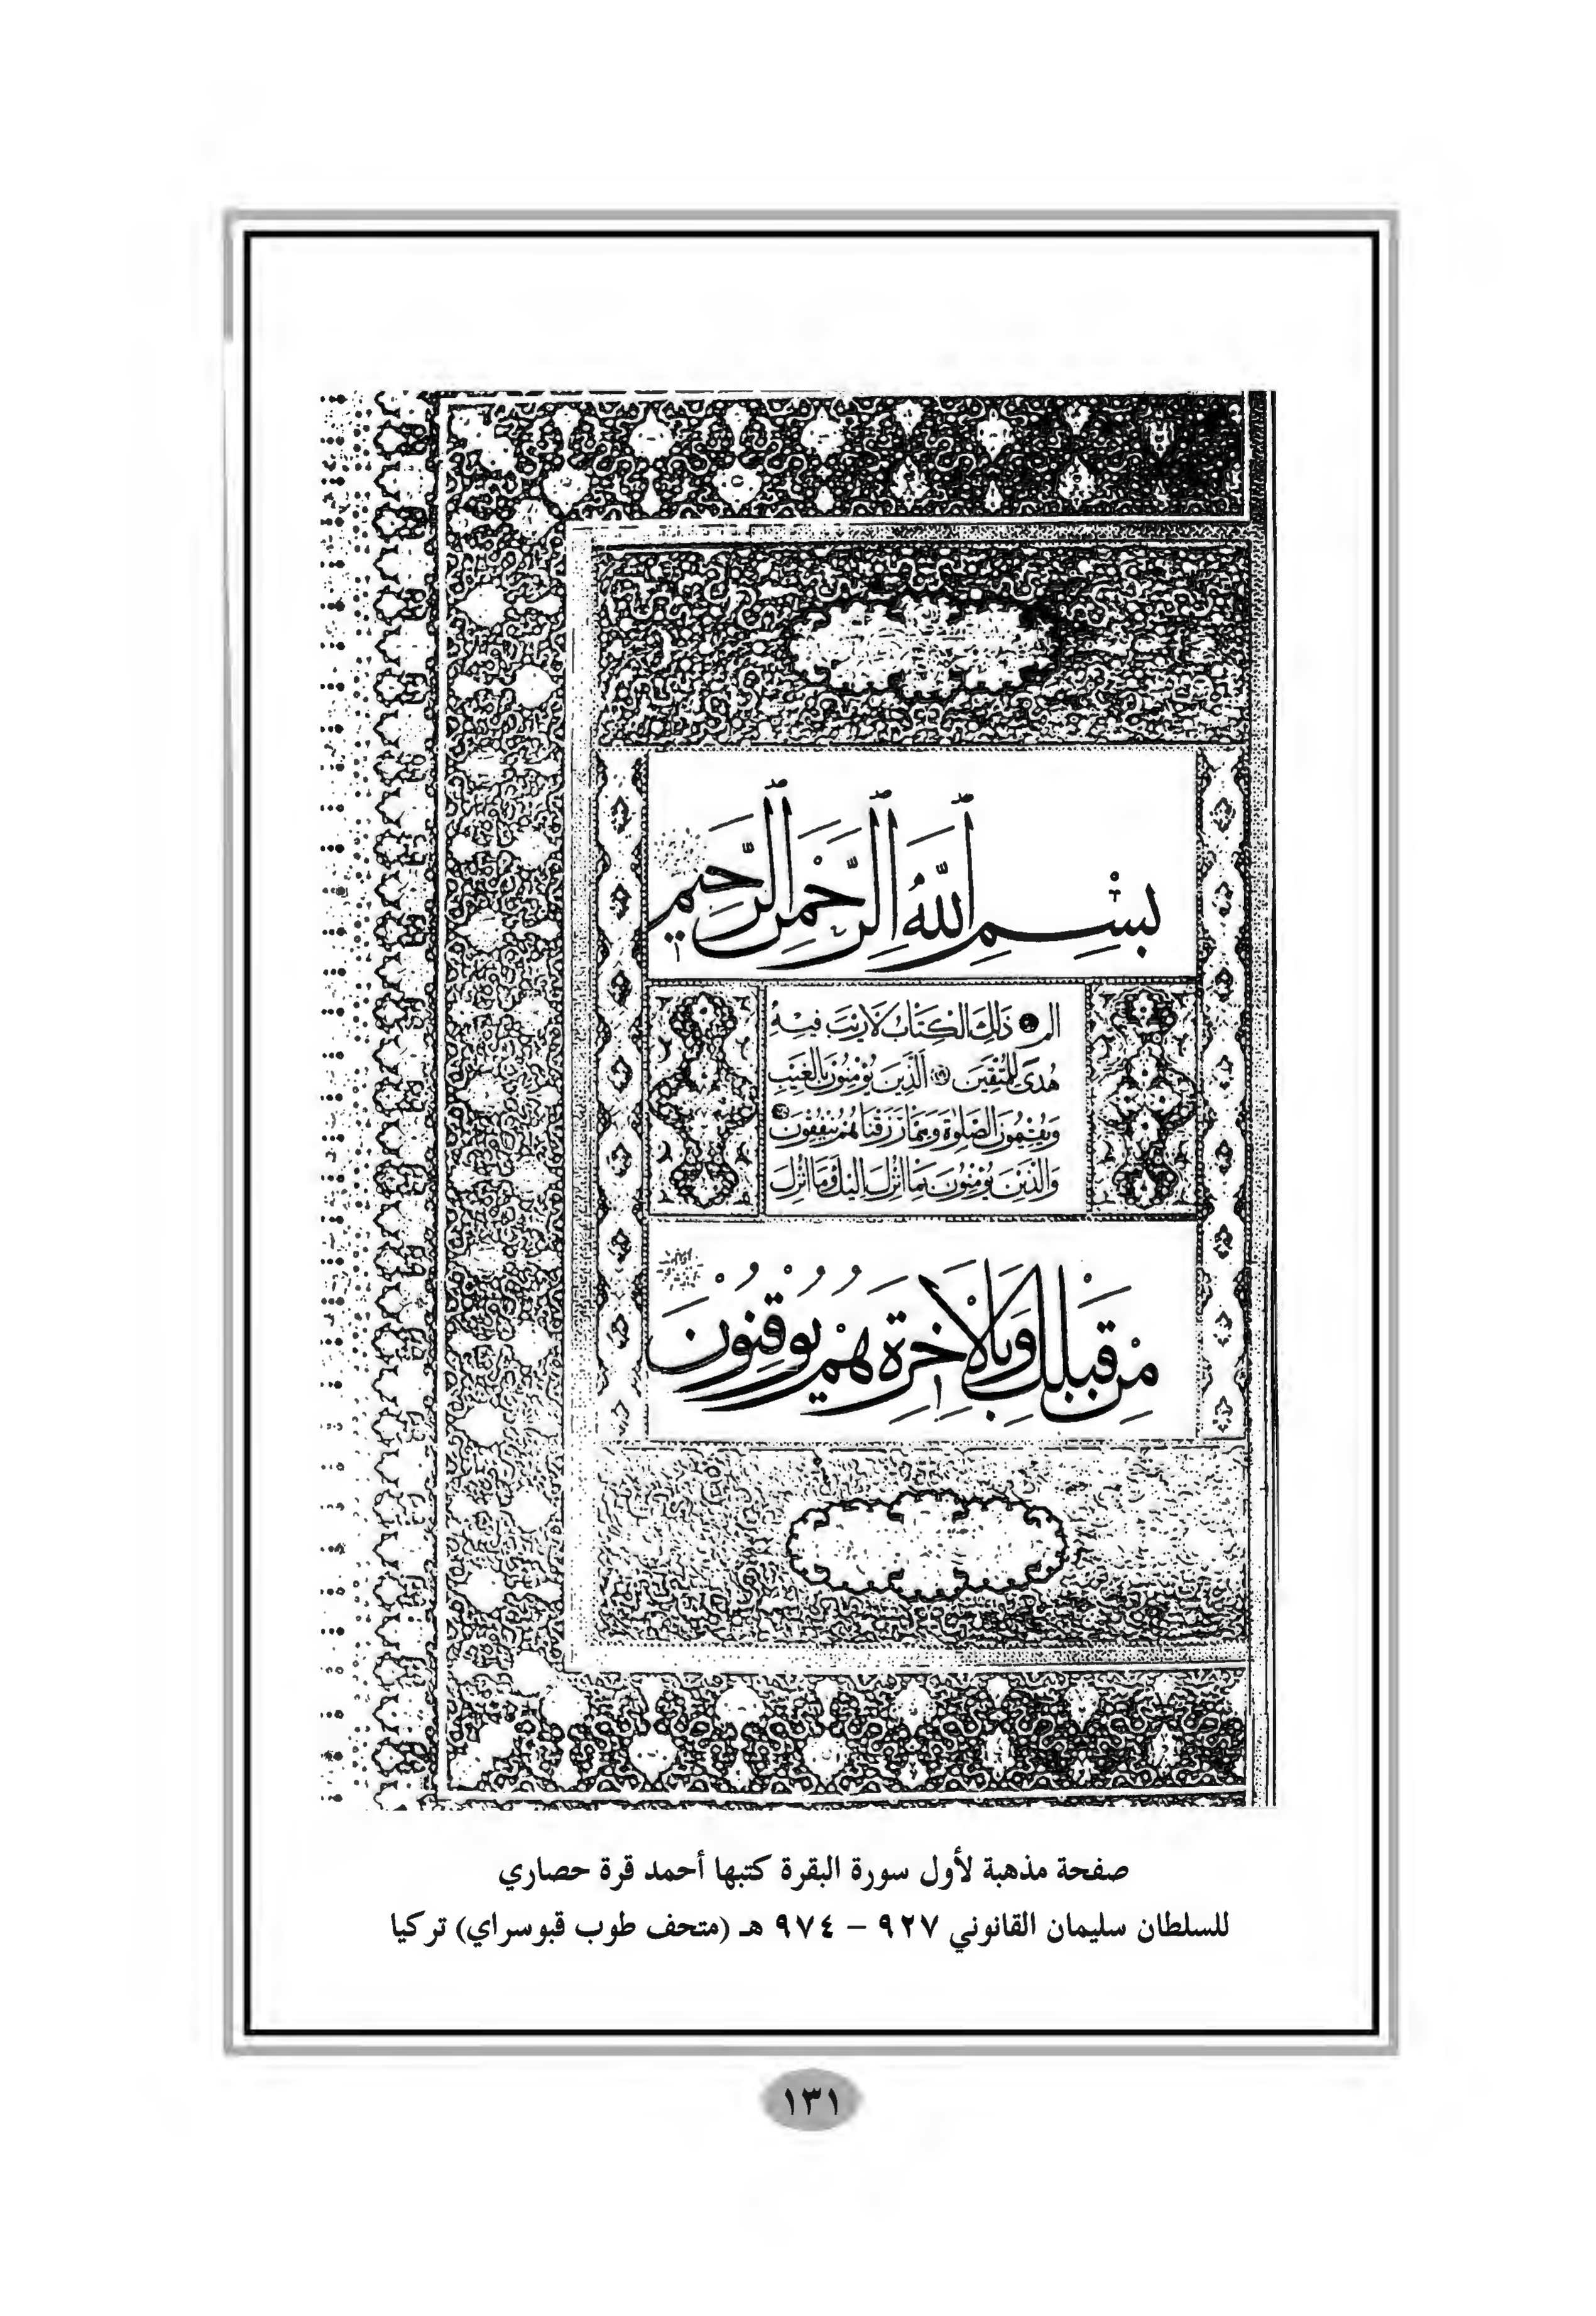 بِسْمِ اللَّهِ الرَّحْمَنِ الرَّحِيمِ
الم ذَلِكَ الْكِتَابُ لَا رَيْبَ فِيهِ
هُدًى لِلْمُتَّقِينَ الَّذِينَ يُؤْمِنُونَ بِالْغَيْبِ
وَيُقِيمُونَ الصَّلَوةَ وَمِمَّا رَزَقْنَاهُمْ يُنْفِقُونَ
وَالَّذِينَ يُؤْمِنُونَ بِمَا أُنْزِلَ إِلَيْكَ وَمَا أُنْزِلَ
مِنْ قَبْلِكَ وَبِالْآخِرَةِ هُمْ يُوقِنُونَ
صفحة مذهبة لأول سورة البقرة كتبها أحمد قرة حصاري
للسلطان سليمان القانوني ٩٢٧ – ٩٧٤ هـ (متحف طوب قبوسراي) تركيا
١٣١